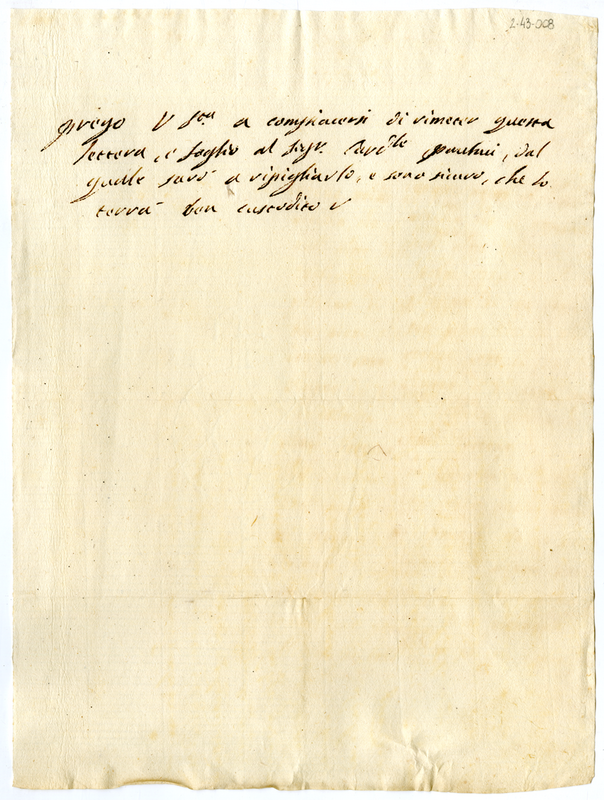 2-43-008
prego V S.ria a compiacersi di rimeter questa
lettera, e foglio al Sigr. Card.le , dal
quale sarò a ripigliarlo, e sono sicuro, che lo
terrà ben custodito